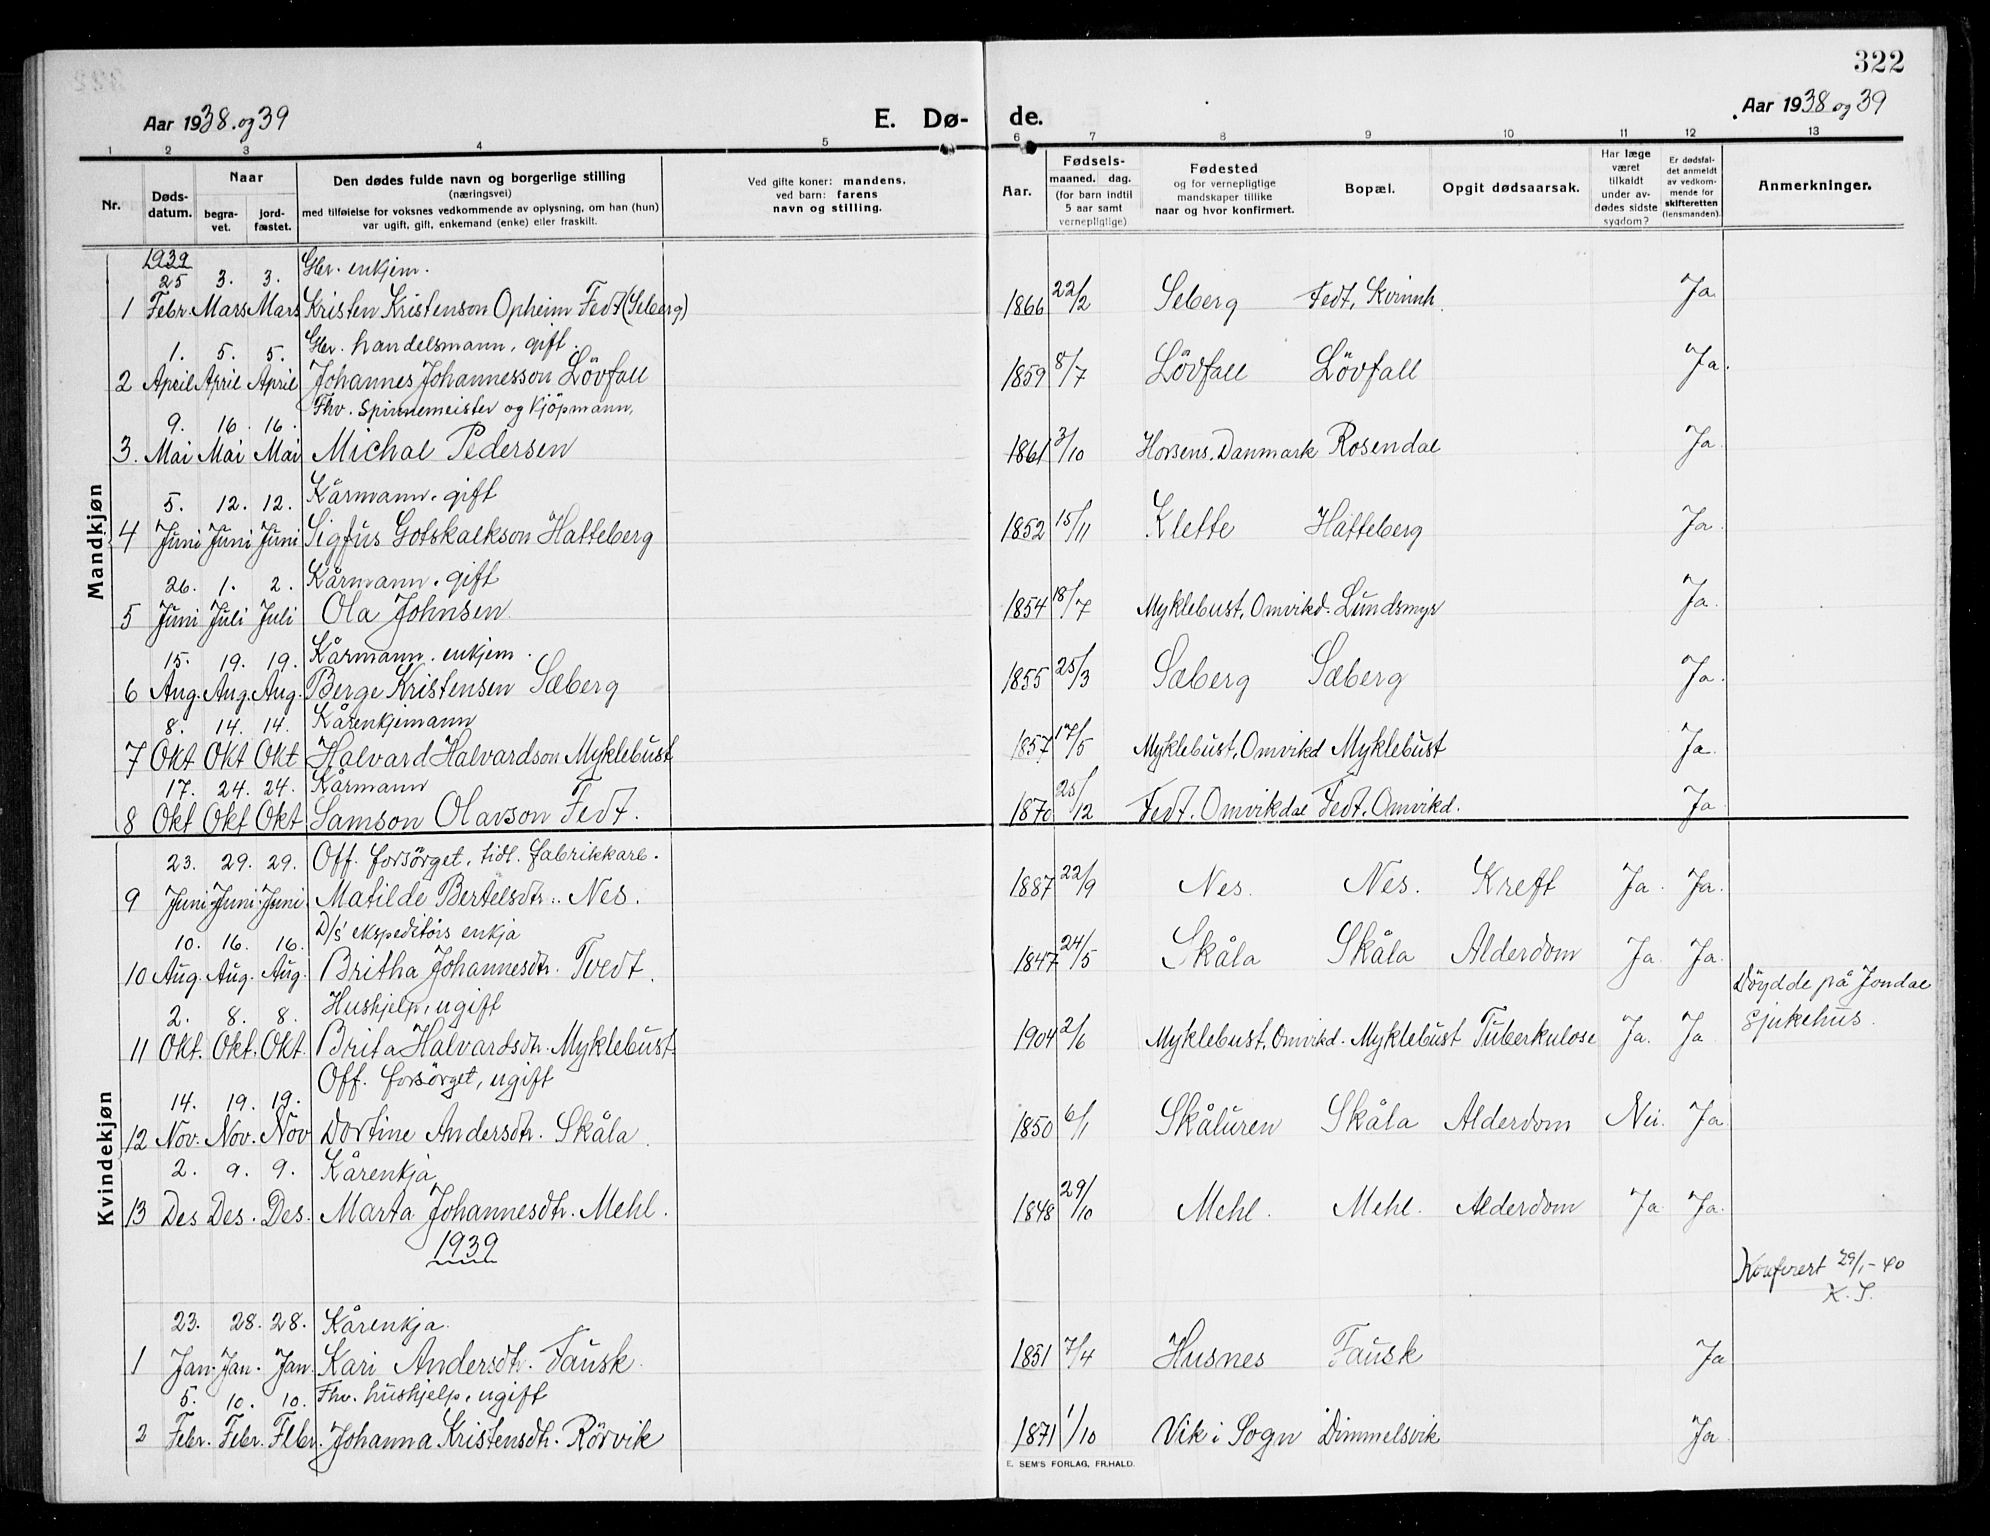 322
Aar 1938. og 39
E. Dø-
de.
Aar 1938 og 39
1 2 3 4 5 6 7 8 9 10 11 12 13
Nr.
Døds-datum.
Naar
begra-vet.
jord-fæstet.
Den dødes fulde navn og borgerlige stilling
(næringsvei)
med tilføielse for voksnes vedkommende av oplysning, om han (hun)
var ugift, gift, enkemand (enke) eller fraskilt.
Ved gifte koner: mandens,
ved barn: farens
navn og stilling.
Aar.
Fødsels-
maaned. dag.
(for barn indtil
5 aar samt
vernepligtige)
Fødested
og for vernepligtige
mandskaper tillike
naar og hvor konfirmert.
Bopæl.
Opgit dødsaarsak.
Har læge
været
tilkaldt
under av-
dødes sidste
sygdom?
Er dødsfal-
det anmeldt
av vedkom-
mende for
skifteretten
(lensmanden).
Anmerkninger.
Mandkjøn
1939
25 3. 3. Gbr. enkjem.
1 Febr. Mars Mars Kristen Kristenson Opheim Fedt (Seberg) 1866 22/2 Seberg Fedt, Kvinnh. Ja
1. 5. 5. Gbr. handelsmann, gift.
2 April April April Johannes Johannesson Lövfall 1859 8/7 Lövfall Lövfall Ja.
9. 16. 16. Fhv. Spinnemeister og kjöpmann,
3. Mai Mai Mai Michal Pedersen 1861 3/10 Horsens. Danmark Rosendal Ja.
5. 12. 12. Kårmann. gift
4 Juni Juni Juni Sigfus Gotskalkson Hatteberg 1852 15/11 Klette Hatteberg Ja.
26. 1. 2. Kårmann. gift
5 Juni Juli Juli Ola Johnsen. 1854 18/7 Myklebust, Omvikd. Lundsmyr Ja.
15. 19. 19. Kårmann. enkjem.
6 Aug. Aug. Aug. Berge Kristensen Sæberg 1855 25/3 Sæberg Sæberg Ja.
8. 14. 14. Kårenkjemann
7 Okt Okt Okt Halvard Halvardson Myklebust 1857 17/5 Myklebust, Omvikd Myklebust Ja.
17. 24. 24. Kårmann
8 Okt Okt Okt Samson Olavson Fedt. 1870 25/12 Fedt. Omvikdal Fedt. Omvikd. Ja
Kvindekjøn
23. 29. 29. Off. forsörget, tidl. fabrikkarb.
9 Juni Juni Juni Matilde Bertelsdtr. Nes. 1887 22/9 Nes. Nes. Kreft Ja. Ja.
10. 16. 16. D/s ekspeditörs enkja
10 Aug. Aug. Aug. Britha Johannesdtr. Tvedt. 1847 24/5 Skåla Skåla Alderdom Ja Ja.
2. 8. 8. Hushjelp, ugift
11 Okt. Okt. Okt. Brita Halvardsdtr. Myklebust 1904 2/6 Myklebust, Omvikd. Myklebust Tuberkulose Ja. Ja Döydde på Jondal
Sjukehus.
14. 19. 19. Off. forsörget, ugift
12 Nov. Nov. Nov Dortine Andersdtr. Skåla. 1850 6/1 Skåluren Skåla Alderdom Nei. Ja
2. 9. 9. Kårenkja
13 Des Des. Des. Marta Johannesdtr. Mehl. 1848 29/10 Mehl. Mehl. Alderdom Ja Ja.
1939
Konferert 29/1-40
K. S.
23. 28. 28. Kårenkja.
1 Jan. Jan. Jan. Kari Andersdtr. Fausk. 1851 7/4 Husnes Fausk Ja
5. 10. 10. Fhv. hushjelp, ugift
2 Febr. Febr. Febr. Johanna Kristensdtr. Rörvik 1871 1/10 Vik i Sogn Dimmelsvik Ja
E. SEM'S FORLAG, FR.HALD.